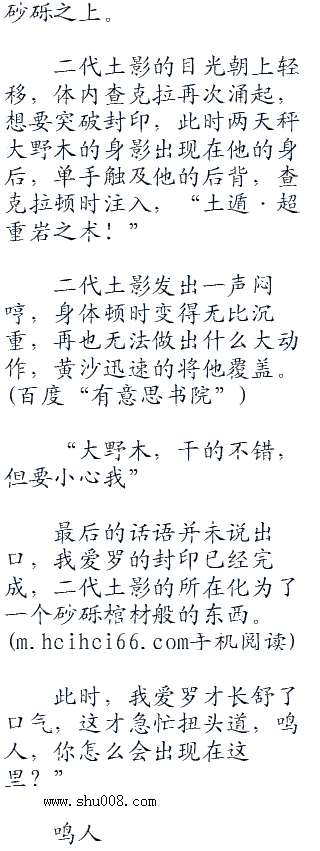 砂砾之上。
二代土影的目光朝上轻
移，体内查克拉再次涌起，
想要突破封印，此时两天秤
大野木的身影出现在他的身
后，单手触及他的后背，查
克拉顿时注入，“土遁·超
重岩之术！”
二代土影发出一声闷
哼，身体顿时变得无比沉
重，再也无法做出什么大动
作，黄沙迅速的将他覆盖。
(百度“有意思书院”)
“大野木，干的不错，
但要小心我”
最后的话语并未说出
口，我爱罗的封印已经完
成，二代土影的所在化为了
一个砂砾棺材般的东西。
(m.hcihci66.com手机阅读)
此时，我爱罗才长舒了
口气，这才急忙扭头道，鸣
人，你怎么会出现在这
里？”
www.shu008.com
鸣人